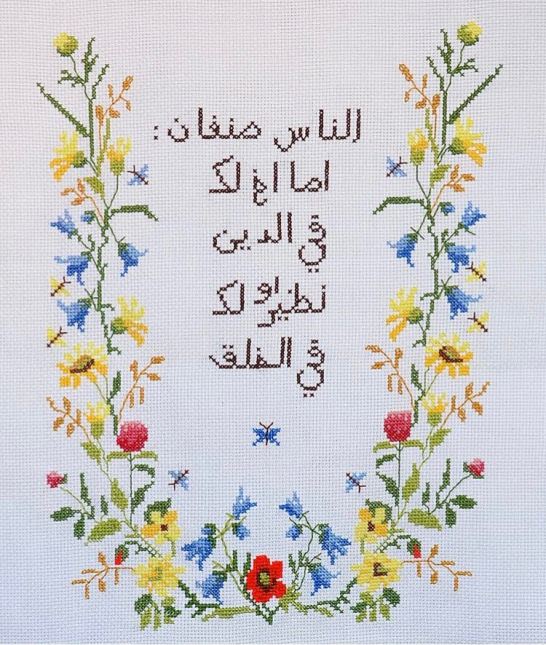 الناس صنفان:
اما اخ لك
في الدين
او نظير لك
في الخلق